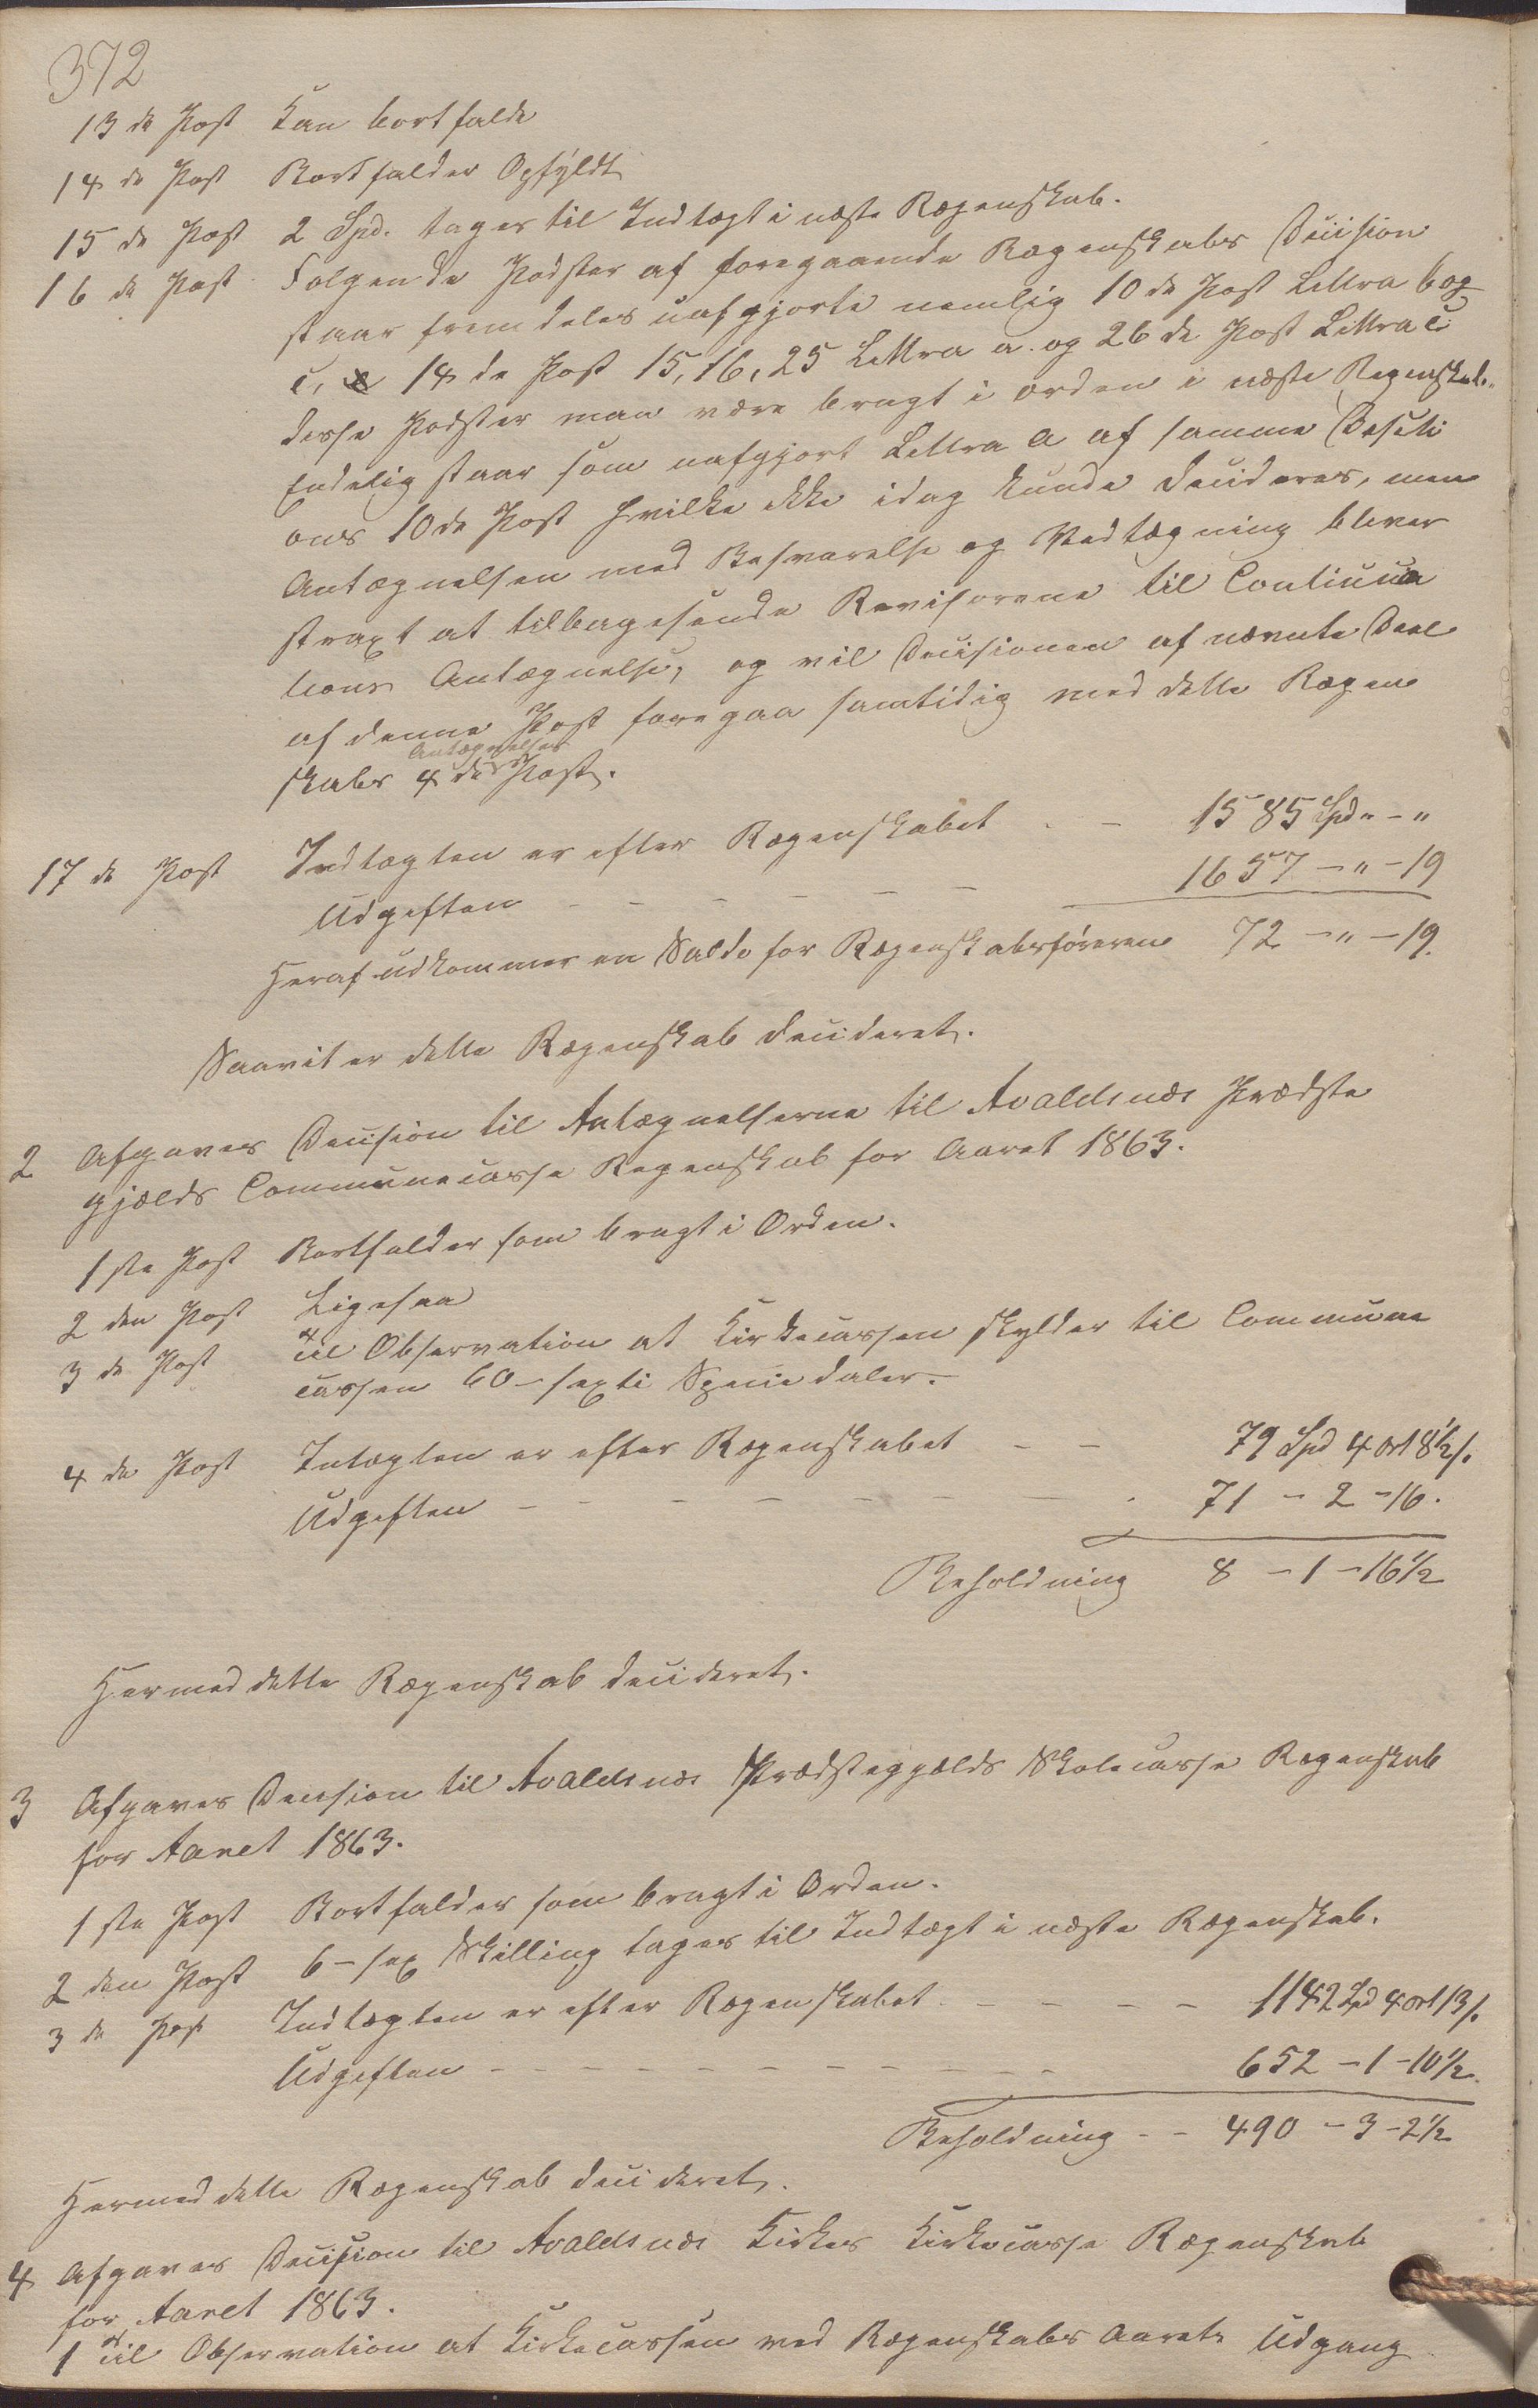 372
13 de Post Kan bortfalde
14 de Post Bortfalder Opfyldt
15 de Post 2 Spd. tages til Indtægt i næste Regenskab.
16 de Post Følgende Poster af foregaaende Regenskabs Decision
staar fremdeles uafgjorte nemlig 10 de Post Littra b og
c, 14 de Post 15, 16, 25 Littra a. og 26 de Post Littra c
disse Poster maa være bragt i orden i næste Regenskab.
Endelig staar som uafgjort Littra a af samme
10 de Post hvilke ikke idag kunde decideres, men
Antegnelsen med Besvarelse og Vedtegning bliver
straxt at tilbagesende Revisorerne til Continua
tions Antegnelse, og vil Decisionen af nævnte Deel
af denne Post foregaa samtidig med dette Regen
skabs 4 de Antegnelses Post.
17 de Post Indtægten er efter Regenskabet - - 1585 Spd " - "
Udgiften - - - - - 1657 - " - 19
Heraf udkommer en Saldo for Regenskabsføreren 72 - " - 19.
Saavit er dette Regenskab decideret.
2 Afgaves Decision til Antegnelserne til Avaldsnæs Præste
gjælds Communecasse Regenskab for Aaret 1863.
1 ste Post Bortfalder som bragt i Orden.
2 den Post Ligesaa
3 de Post til Observation at Kirkecassen skylder til Commune
cassen 60 - sexti Speciedaler.
4 de Post Intægten er efter Regenskabet - - 79 Spd 4 ort 8½ s.
Udgiften - - - - - - - - 71 - 2 - 16.
Beholdning 8 - 1 - 16½
Hermed dette Regenskab decideret.
3 Afgaves Decision til Avaldsnæs Præstegjælds Skolecasse Regenskab
for Aaret 1863.
1 ste Post Bortfalder som bragt i Orden.
2 den Post 6 - sex Skilling tages til Indtægt i næste Regenskab.
3 de Post Indtægten er efter Regenskabet - - - - - 1142 Spd 4 ort 13 s.
Udgiften - - - - - - - - - - - 652 - 1 - 10½.
Beholdning - - 490 - 3 - 2½
Hermed dette Regenskab decideret.
4 Afgaves Decision til Avaldsnæs Kirkes Kirkecasse Regenskab
for Aaret 1863.
1 til Observation at Kirkecassen ved Regenskabs Aarets Udgang